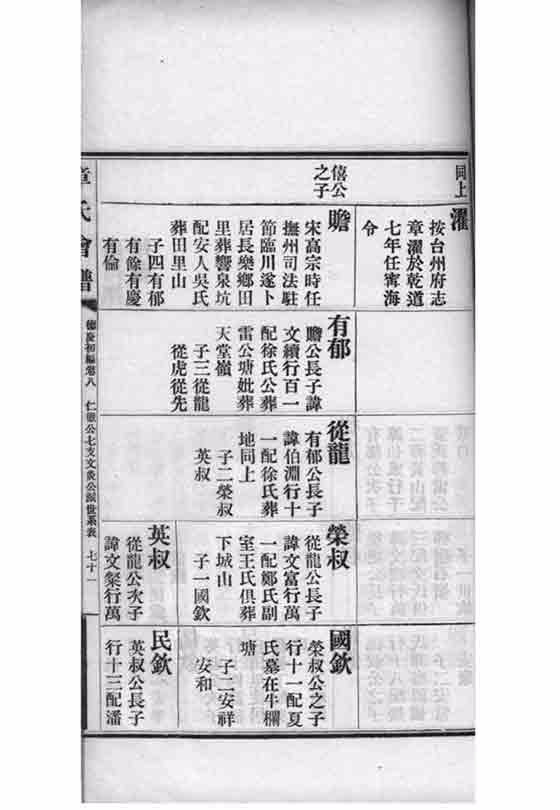 同上
濯
按台州府志
章濯於乾道
七年任寗海
令
僖公
之子
瞻
宋高宗時任
撫州司法駐
節臨川遂卜
居長樂鄉田
里葬響泉坑
配安人吳氏
葬田里山
子四有郁
有餘有慶
有倫
有郁
瞻公長子諱
文續行百一
配徐氏公葬
雷公塘妣葬
天堂嶺
子三從龍
從虎從先
從龍
有郁公長子
諱伯淵行十
一配徐氏葬
地同上
子二榮叔
英叔
榮叔
從龍公長子
諱文富行萬
一配鄭氏副
室王氏俱葬
下城山
子一國欽
英叔
從龍公次子
諱文粲行萬
國欽
榮叔公之子
行十一配夏
氏墓在牛欄
塘
子二安祥
安和
民欽
英叔公長子
行十三配潘
章氏會譜
德慶初編卷八
仁徹公七支文炎公派世系表
七十一